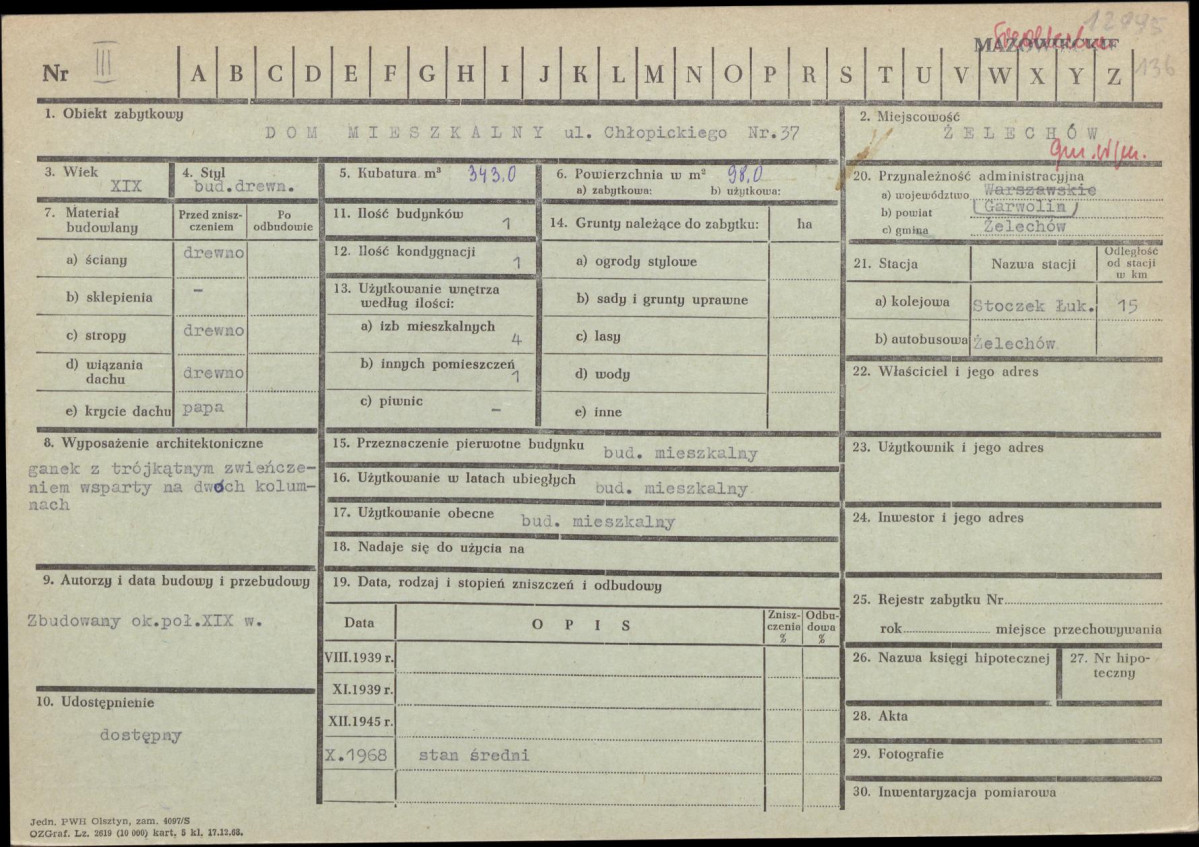 12995
MAZOWIECKIE
136
Nr III A B C D E F G H I J K L M N O P R S T U V W X Y Z
1. Obiekt zabytkowy
DOM MIESZKALNY ul. Chłopickiego Nr.37
2. Miejscowość
ŻELECHÓW
3. Wiek
XIX
4. Styl
bud.drewn.
5. Kubatura m³ 343.0
6. Powierzchnia w m² 98.0
a) zabytkowa: b) użytkowa:
20. Przynależność administracyjna
a) województwo Warszawskie
b) powiat Garwolin
c) gmina Żelechów
7. Materiał budowlany
Przed znisz-
czeniem
Po
odbudowie
a) ściany drewno
b) sklepienia -
c) stropy drewno
d) wiązania
dachu drewno
e) krycie dachu papa
11. Ilość budynków 1
12. Ilość kondygnacji 1
13. Użytkowanie wnętrza
według ilości:
a) izb mieszkalnych 4
b) innych pomieszczeń 1
c) piwnic -
14. Grunty należące do zabytku: ha
a) ogrody stylowe
b) sady i grunty uprawne
c) lasy
d) wody
e) inne
21. Stacja Nazwa stacji
Odległość
od stacji
w km
a) kolejowa Stoczek Łuk. 15
b) autobusowa Żelechów
22. Właściciel i jego adres
8. Wyposażenie architektoniczne
ganek z trójkątnym zwieńcze-
niem wsparty na dwóch kolum-
nach
15. Przeznaczenie pierwotne budynku bud. mieszkalny
16. Użytkowanie w latach ubiegłych bud. mieszkalny
17. Użytkowanie obecne bud. mieszkalny
18. Nadaje się do użycia na
23. Użytkownik i jego adres
24. Inwestor i jego adres
9. Autorzy i data budowy i przebudowy
Zbudowany ok.poł.XIX w.
19. Data, rodzaj i stopień zniszczeń i odbudowy
Data OPIS
Znisz-
czenia
%
Odbu-
dowa
%
VIII.1939 r.
XI.1939 r.
XII.1945 r.
X.1968 stan średni
25. Rejestr zabytku Nr
rok miejsce przechowywania
26. Nazwa księgi hipotecznej
27. Nr hipo-
teczny
10. Udostępnienie
dostępny
28. Akta
29. Fotografie
30. Inwentaryzacja pomiarowa
Jedn. PWH Olsztyn, zam. 4097/S
OZGraf. Lz. 2619 (10 000) kart. 5 kl, 17.12.68.